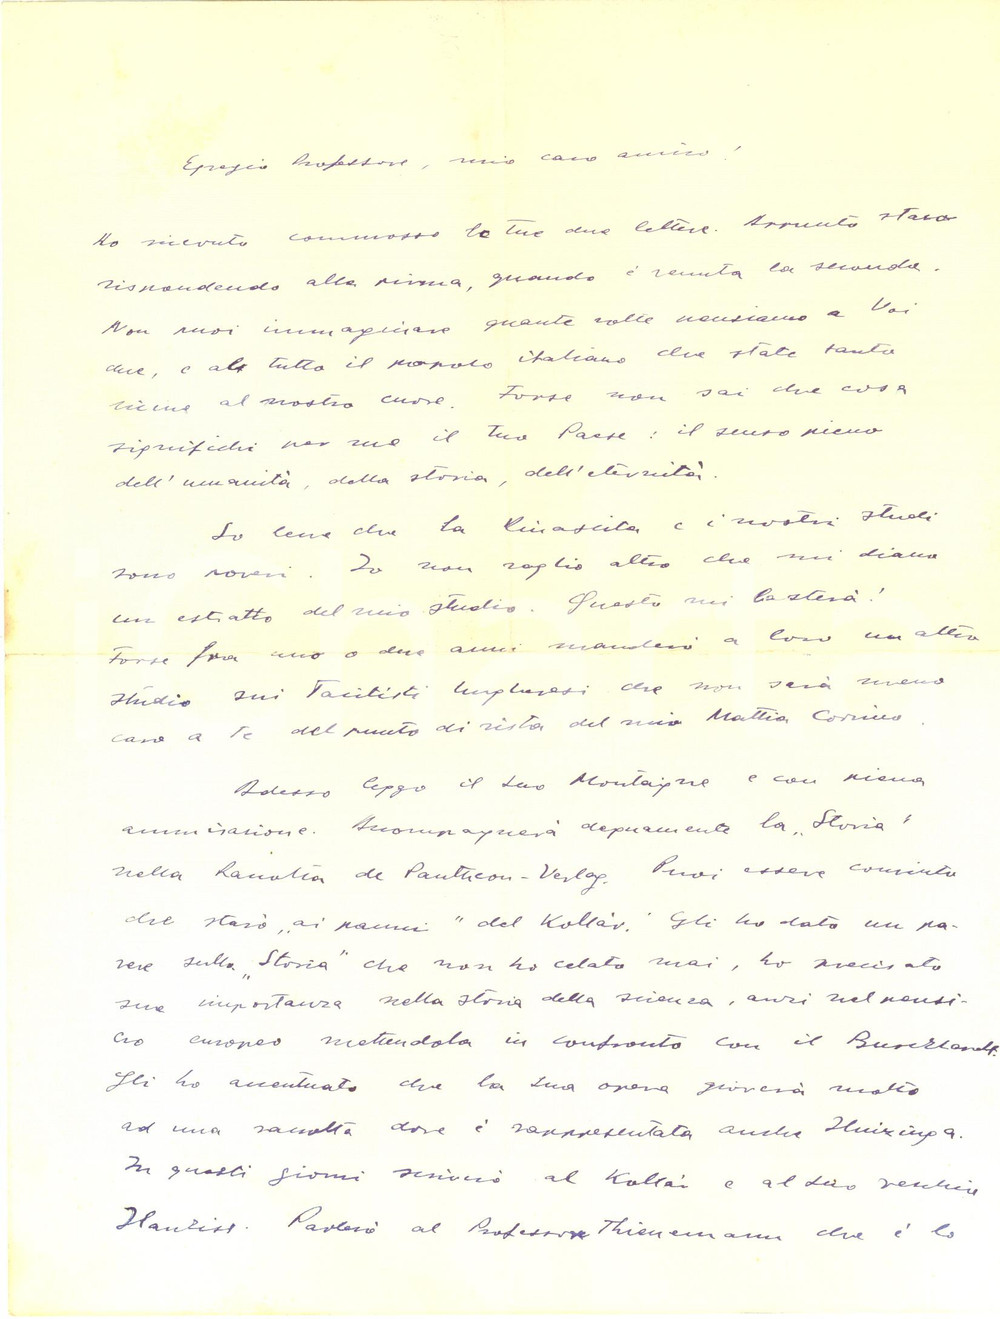 Egregio Professore, mio caro amico!
Ho ricevuto commosso le tue due lettere. Appunto stavo
rispondendo alla prima, quando è venuta la seconda.
Non puoi immaginare quante volte pensiamo a Voi
due, e a tutto il popolo italiano che state tanto
vicine al nostro cuore. Forse non sai che cosa
significhi per me il tuo Paese: il senso pieno
dell'umanità, della storia, dell'eternità.
So bene che La Rinascita e i nostri studi
sono poveri. Io non voglio altro che mi diano
un estratto del mio studio. Questo mi basterà!
Forse fra uno o due anni manderò a loro un altro
studio sui Tacitisti Ungheresi che non sarà meno
caro a te del punto di vista del mio Mattia Corvino.
Adesso leggo il suo Montaigne e con piena
ammirazione. Accompagnerà degnamente la „Storia"
nella Raccolta de Pantheon-Verlag. Puoi essere convinto
che starò „ai panni" del Kollár. Gli ho dato un pa-
rere sulla „Storia" che non ho celato mai, ho precisato
sue importanza nella storia della scienza, anzi nel pensi-
ero europeo mettendola in confronto con il Burckhardt.
Gli ho accentuato che la sua opera gioverà molto
ad una raccolta dove è rappresentata anche Huizinga.
In questi giorni scriverò al Kollár e al suo
Parlerò al Professore Thienemann che è lo